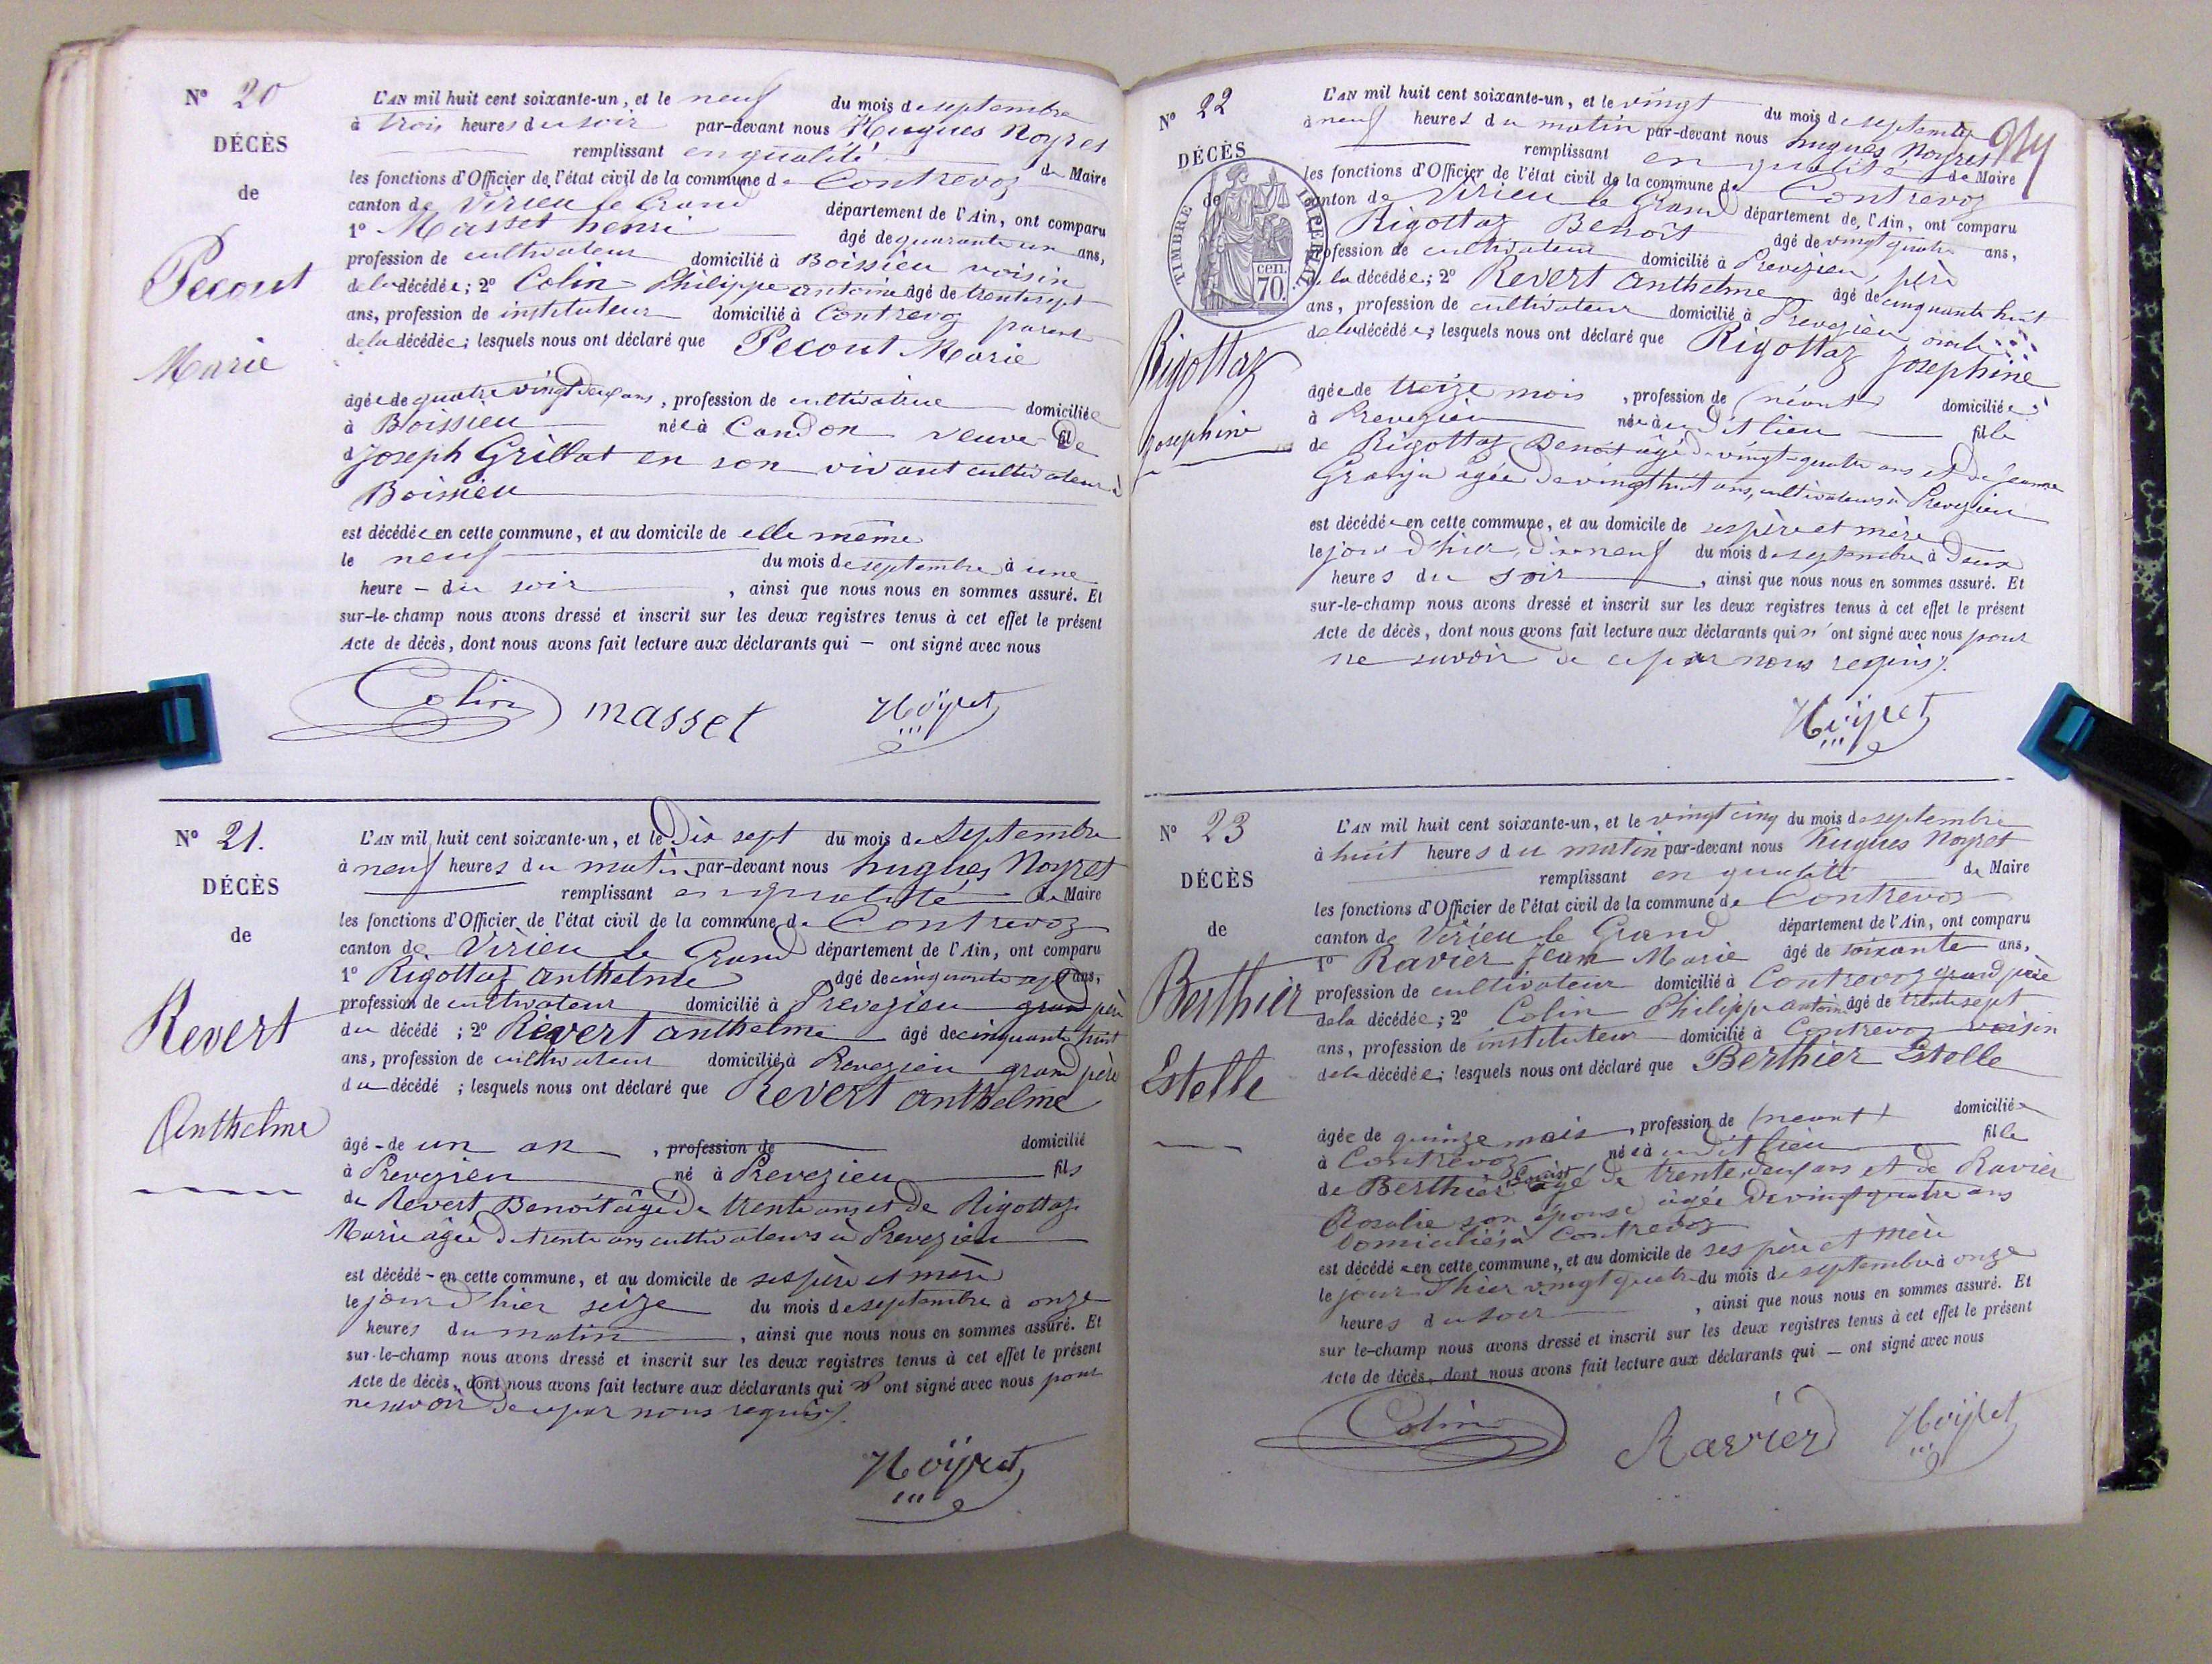 N° 20
DÉCÈS
de
Pecout
Marie
L'AN mil huit cent soixante-un, et le neuf du mois de septembre
à trois heures du soir par-devant nous Hugues Noyret
remplissant en qualité de Maire
les fonctions d'Officier de l'état civil de la commune de Contrevoz
canton de Virieu le Grand département de l'Ain, ont comparu
1° Masset henri âgé de quarante un ans,
profession de cultivateur domicilié à Boissieu voisin
de la décédée; 2° Colin Philippe antoine âgé de trente sept
ans, profession de instituteur domicilié à Contrevoz parent
de la décédée; lesquels nous ont déclaré que Pecout Marie
âgée de quatre vingt deux ans, profession de cultivatrice domiciliée
à Boissieu née à Condon veuve de
Joseph Grillat en son vivant cultivateur à
Boissieu
est décédée en cette commune, et au domicile de elle même
le neuf du mois de septembre à une
heure - du soir, ainsi que nous nous en sommes assuré. Et
sur-le-champ nous avons dressé et inscrit sur les deux registres tenus à cet effet le présent
Acte de décès, dont nous avons fait lecture aux déclarants qui — ont signé avec nous
Colin masset Noÿret
N° 21.
DÉCÈS
de
Revert
Anthelme
L'AN mil huit cent soixante-un, et le Dix sept du mois de Septembre
à neuf heures du matin par-devant nous hugues Noyret
remplissant en qualité de Maire
les fonctions d'Officier de l'état civil de la commune de Contrevoz
canton de Virieu le Grand département de l'Ain, ont comparu
1° Rigottaz anthelme âgé de cinquante sept ans,
profession de cultivateur domicilié à Prevezieu grand père
du décédé; 2° Revert anthelme âgé de cinquante huit
ans, profession de cultivateur domicilié à Prevezieu grand père
du décédé; lesquels nous ont déclaré que Revert anthelme
âgé - de un an, profession de domicilié
à Prevezieu né à Prevezieu fils
de Revert Benoit âgé de trente ans et de Rigottaz
Marie âgée de trente ans cultivateurs à Prevezieu
est décédé - en cette commune, et au domicile de ses père et mère
le jour d'hier seize du mois de septembre à onze
heures du matin, ainsi que nous nous en sommes assuré. Et
sur-le-champ nous avons dressé et inscrit sur les deux registres tenus à cet effet le présent
Acte de décès, dont nous avons fait lecture aux déclarants qui n'ont signé avec nous pour
ne savoir de ce par nous requis.
Noÿret
N° 22
DÉCÈS
de
TIMBRE IMPERIAL
cen.
70.
Rigottaz
Josephine
L'AN mil huit cent soixante-un, et le vingt du mois de septembre
à neuf heures du matin par-devant nous hugues Noyret
remplissant en qualité de Maire
les fonctions d'Officier de l'état civil de la commune de Contrevoz
canton de Virieu le Grand département de l'Ain, ont comparu
Rigottaz Benoit âgé de vingt quatre ans,
profession de cultivateur domicilié à Prevezieu, père
de la décédée; 2° Revert anthelme âgé de cinquante huit
ans, profession de cultivateur domicilié à Prevezieu oncle
de la décédée; lesquels nous ont déclaré que Rigottaz Josephine
âgée de treize mois, profession de (néant) domiciliée
à Prevezieu née à ce dit lieu fille
de Rigottaz Benoit âgé de vingt-quatre ans et de Jeanne
âgée de vingt huit ans, cultivateurs à Prevezieu
est décédée en cette commune, et au domicile de ses père et mère
le jour d'hier, dix neuf du mois de septembre à deux
heures du soir, ainsi que nous nous en sommes assuré. Et
sur-le-champ nous avons dressé et inscrit sur les deux registres tenus à cet effet le présent
Acte de décès, dont nous avons fait lecture aux déclarants qui n'ont signé avec nous pour
ne savoir de ce par nous requis.
Noÿret
N° 23
DÉCÈS
de
Berthier
Estelle
L'AN mil huit cent soixante-un, et le vingt cinq du mois de septembre
à huit heures du matin par-devant nous Hugues Noyret
remplissant en qualité de Maire
les fonctions d'Officier de l'état civil de la commune de Contrevoz
canton de Virieu le Grand département de l'Ain, ont comparu
1° Ravier Jean Marie âgé de soixante ans,
profession de cultivateur domicilié à Contrevoz grand père
de la décédée; 2° Colin Philippe antoine âgé de trente sept
ans, profession de instituteur domicilié à Contrevoz voisin
de la décédée; lesquels nous ont déclaré que Berthier Estelle
âgée de quinze mois, profession de (néant) domiciliée
à Contrevoz née à ce dit lieu fille
de Berthier âgé de trente deux ans et de Ravier
Rosalie son épouse âgée de vingt quatre ans
domiciliés à Contrevoz
est décédée en cette commune, et au domicile de ses père et mère
le jour d'hier vingt quatre du mois de septembre à onze
heures du soir, ainsi que nous nous en sommes assuré. Et
sur le-champ nous avons dressé et inscrit sur les deux registres tenus à cet effet le présent
Acte de décès, dont nous avons fait lecture aux déclarants qui — ont signé avec nous
Colin Ravier Noÿret